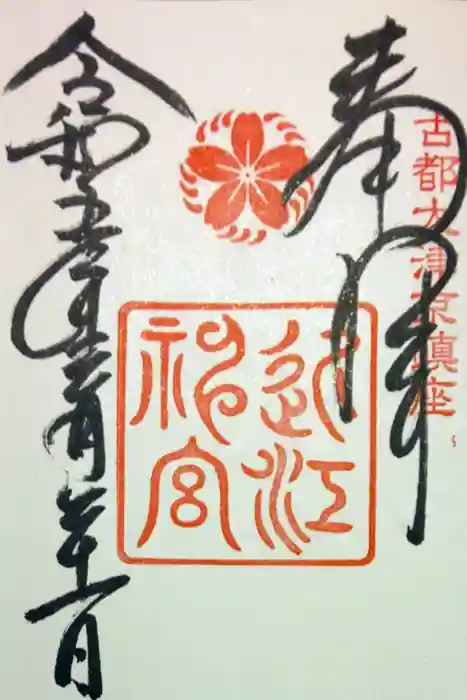 古都大津京鎮座
奉拝
近江
神宮
令和五年 月 一日